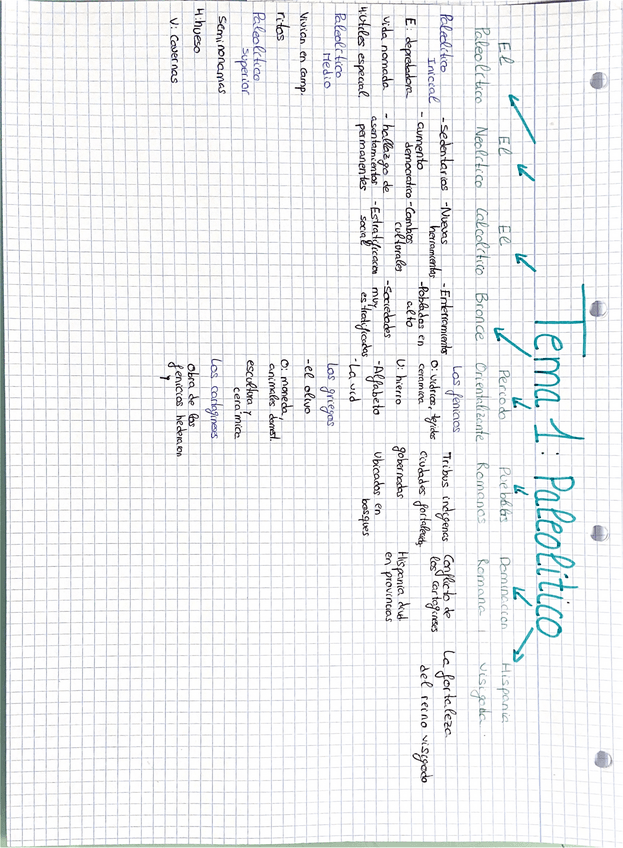 Tema 1: Paleolítico
El
Paleolítico
Paleolítico
Inicial
E: depredadora
vida nomada
H: Utiles especial.
Paleolítico
Medio
Vivian en camp.
ritos
Paleolítico
superior
Seminomanas
H: hueso
V: cavernas
El
Neolítico
- Sedentarios
- aumento
democratico
- hallazgo de
asentamientos
permanentes
El
Calcolítico
- Nuevas
herramientas
- Cambios
culturales
- Estratificacion
social
Bronce
- Enterramientos
- Poblados en
alto
- Sociedades
muy
estratificadas
Periodo
Orientalizante
Los fenicios
O: vidrios, tejidos
ceramica
U: hierro
- Alfabeto
- La vid
Los griegos
- el olivo
O: moneda,
animales domest.
escultora y
cerámica
Los cartagineses
obra de los
fenicios heredaron
y
Pueblos
Romanos
Tribus indígenas
ciudades fortalezas
gobernadas
Ubicados en
bosques
Dominacion
Romana
Conflicto de
los cartagineses
Hispania divid
en provincias
Hispania
Visigoda.
La fortaleza
del reino visigodo